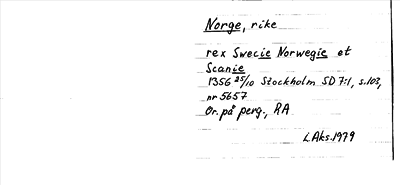 Norge, rike
rex Swecie Norwegie et
Scanie
1356 25/10 Stockholm SD 7:1, s.103,
nr 5657
Or. på perg., RA
LAks.1979